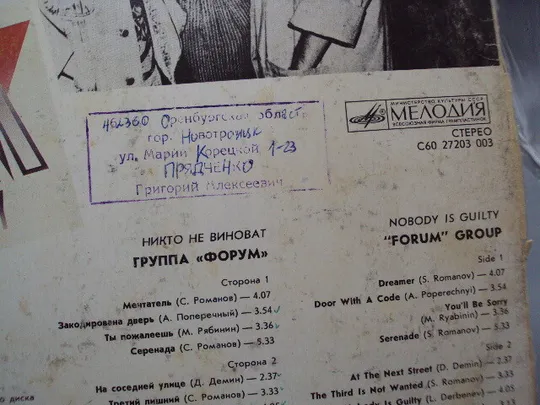 462360 Оренбургская область
гор. Новотроицк
ул. Марии Корецкой 1-23
ПРЯДЧЕНКО
Григорий Алексеевич
МИНИСТЕРСТВО КУЛЬТУРЫ СССР
МЕЛОДИЯ
ВСЕСОЮЗНАЯ ФИРМА ГРАМПЛАСТИНОК
СТЕРЕО
С60 27203 003
НИКТО НЕ ВИНОВАТ
ГРУППА «ФОРУМ»
Сторона 1
Мечтатель (С. Романов) — 4.07
Закодирована дверь (А. Поперечный) — 3.54
Ты пожалеешь (М. Рябинин) — 3.36
Серенада (С. Романов) — 5.33
Сторона 2
На соседней улице (Д. Демин) — 2.37
Третий лишний (С. Романов) — 3.33
NOBODY IS GUILTY
“FORUM” GROUP
Side 1
Dreamer (S. Romanov) — 4.07
Door With A Code (A. Poperechnyi) — 3.54
You'll Be Sorry
(M. Ryabinin) — 3.36
Serenade (S. Romanov) — 5.33
Side 2
At The Next Street (D. Demin) — 2.37
The Third Is Not Wanted (S. Romanov) — 3.33
Is Guilty (L. Derbenev)
диска